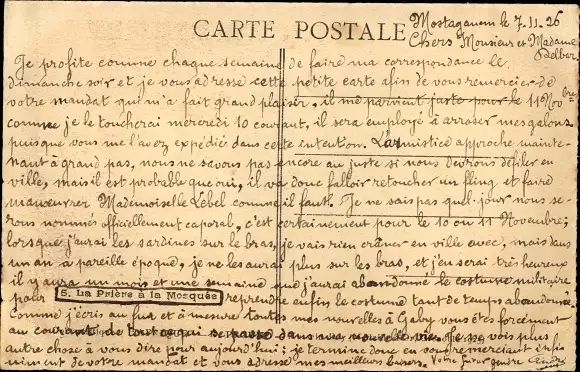 CARTE POSTALE
Mostaganem le 7.11.26
Chers Monsieur et Madame
Delber
Je profite comme chaque semaine de faire ma correspondance le
dimanche soir et je vous adresse cette petite carte afin de vous remercier de
votre mandat qui m'a fait grand plaisir, il me parvient juste pour le 11 Nov bre
comme je le toucherai mercredi 10 courant, il sera employé à arroser mes galons
puisque vous me l'avez expédié dans cette intention. L'armistice approche mainte-
nant à grand pas, nous ne savons pas encore au juste si nous devrons défiler en
ville, mais il est probable que oui, il va donc falloir retoucher un fling et faire
manœuvrer Mademoiselle Lebel comme il faut. Je ne sais pas quel jour nous se-
rons nommés officiellement caporal, c'est certainement pour le 10 ou 11 Novembre;
lorsque j'aurai les sardines sur le bras, je vais rien crâner en ville avec, mais dans
un an à pareille époque, je ne les aurai plus sur les bras, et j'en serai très heureux
il y aura un mois et une semaine que j'aurai abandonné le costume militaire
pour reprendre enfin le costume tant de temps abandonné
5. La Prière à la Mosquée
Comme j'écris au fur et à mesure toutes mes nouvelles à Gaby vous êtes forcément
au courant de tout ce qui se passe dans ma nouvelle vie. Je ne vois plus
autre chose à vous dire pour aujourd'hui; je termine donc en vous remerciant infi-
niment de votre mandat et vous adresse mes meilleurs baisers. Votre futur gendre André